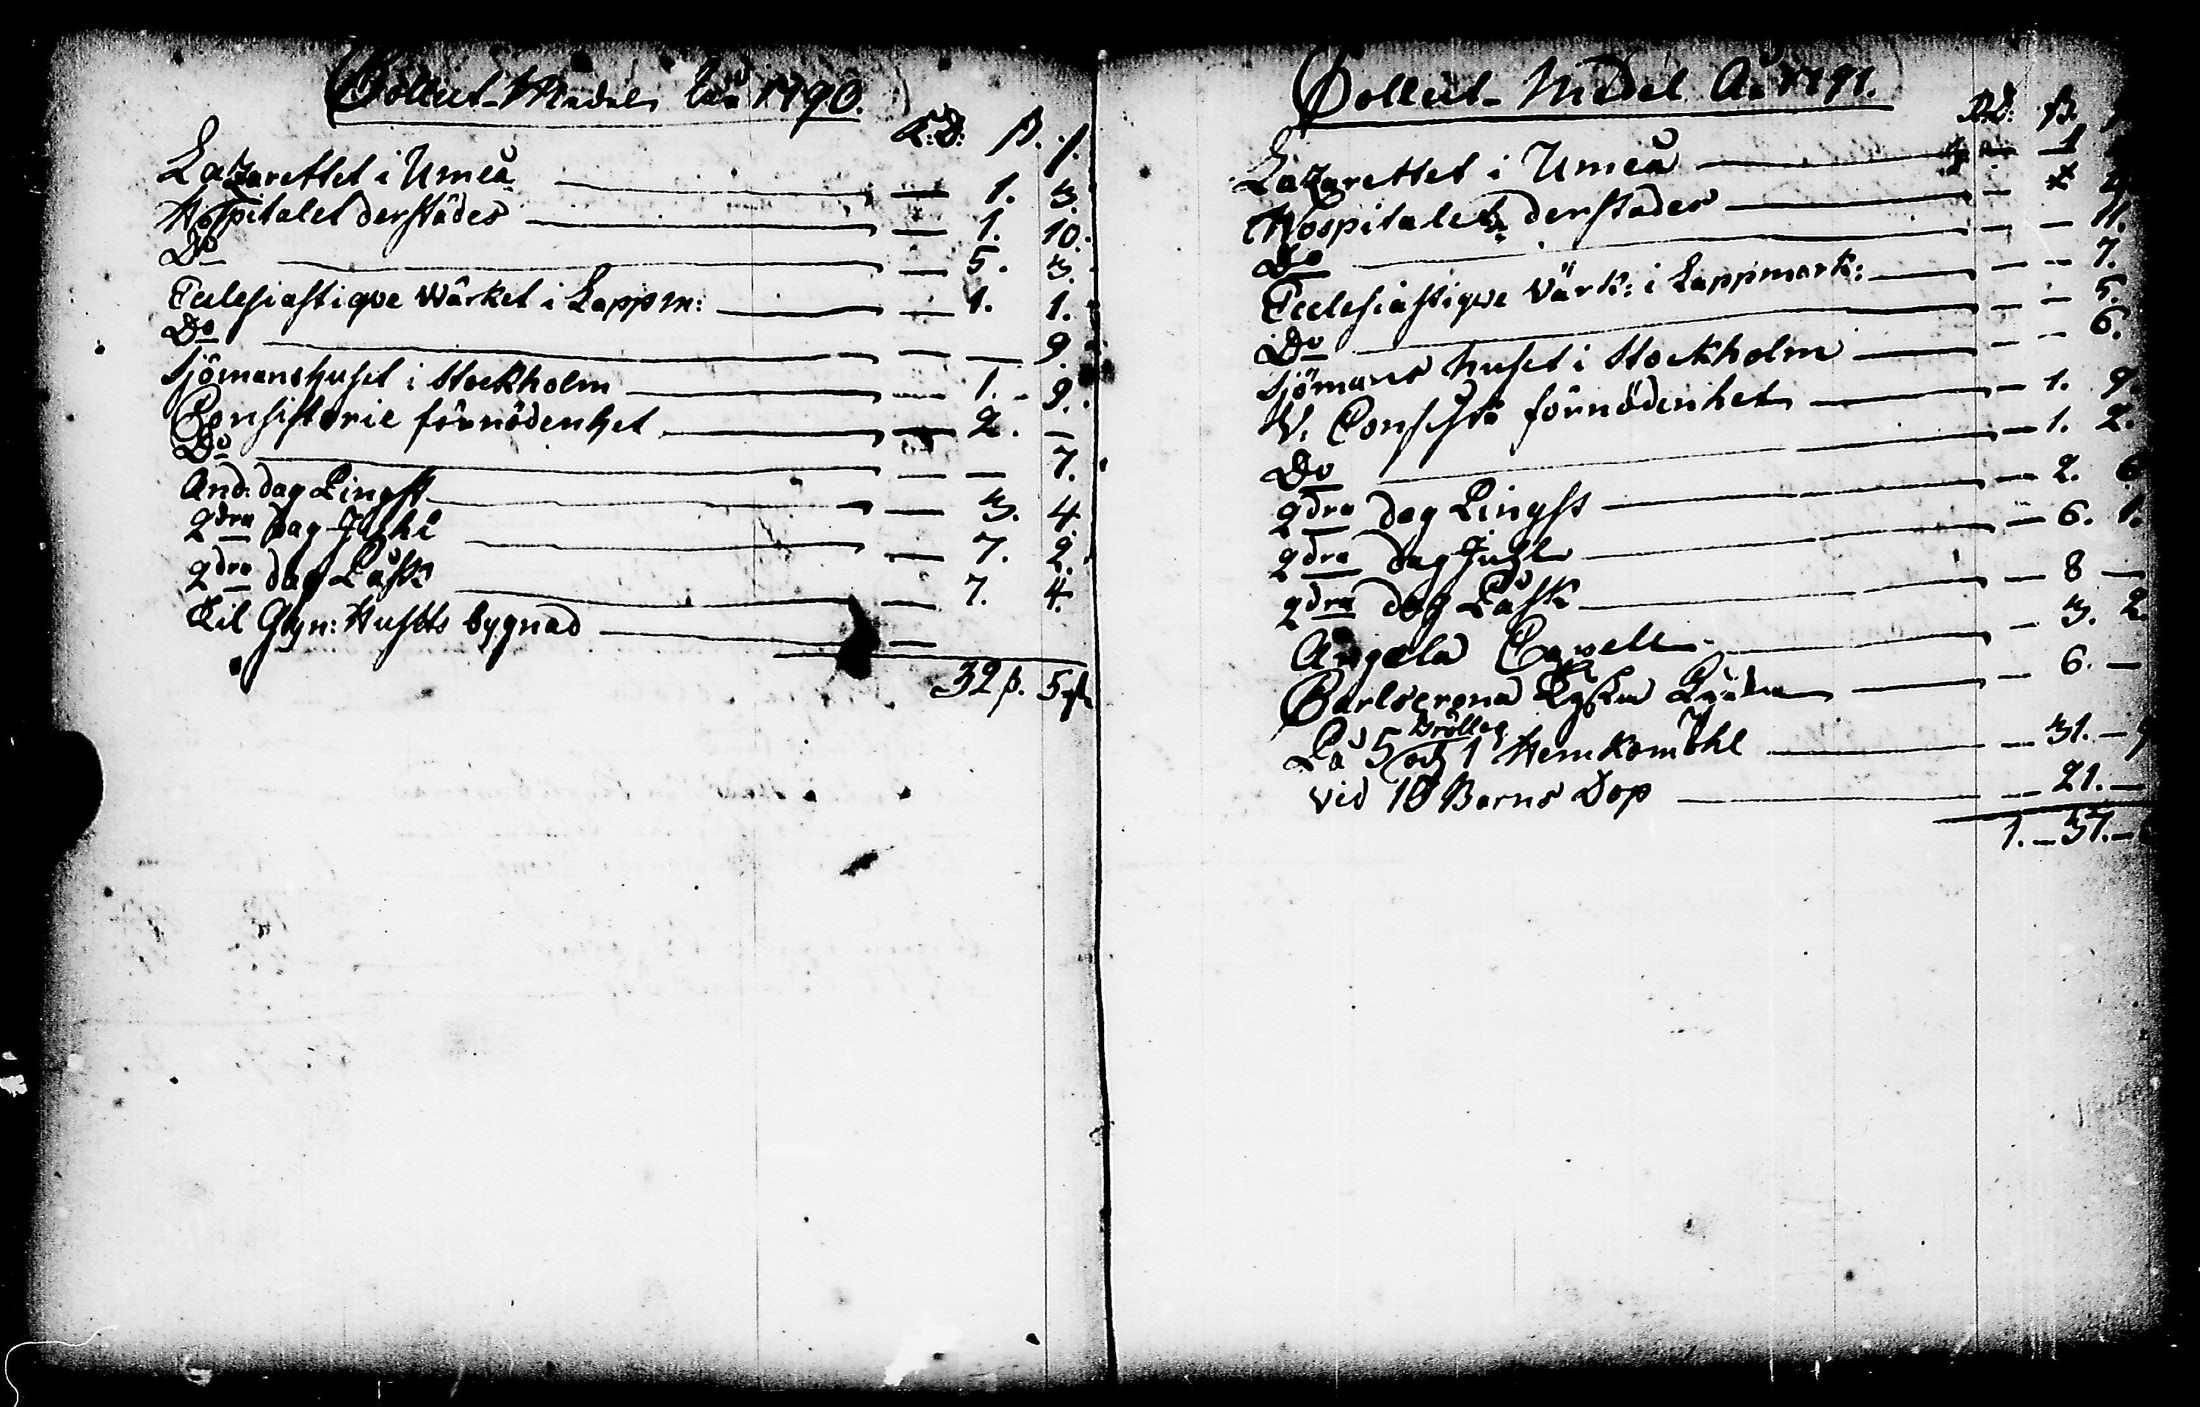 Collect-Medel 1790.
R:D: ß. r.
Lazarettet i Umeå — 1. 3.
Hospitalet derstädes — 1. 10.
Do — 5. 3.
Ecclesiastiqve Wärket i Lappm: — 1. 1.
Do — — 9.
Sjömanshuset i Stockholm — 1. 9.
Consistorie förnödenhet — 2. —
Do — — 7.
And: dag Pingst — 3. 4.
2dra dag Juhl — 7. 2.
2dra dag Påsk — 7. 4.
Til Gym: Husets bygnad —
32 ß. 5 r
Collect-Medel Ao 1791.
RD: ß.
Lazarettet i Umeå — 1
Hospitalet derstädes —
Do — — 11.
Ecclesiastiqve Värk: i Lappmark: — — 7.
Do — — 5.
Sjömans huset i Stockholm — — 6.
V. Consist: förnödenhet — 1. 9
Do — 1. 2.
2dra dag Pingst — 2. 6
2dra dag Juhl — 6. 1.
2dra dag Påsk — 8 —
Angela Capell — 3. 2
Carlscrona Tyska — 6. —
På 5 Bröllop och 1 Hemkomöhl — 31. —
vid 10 Barns Dop — 21. —
1. — 37. —